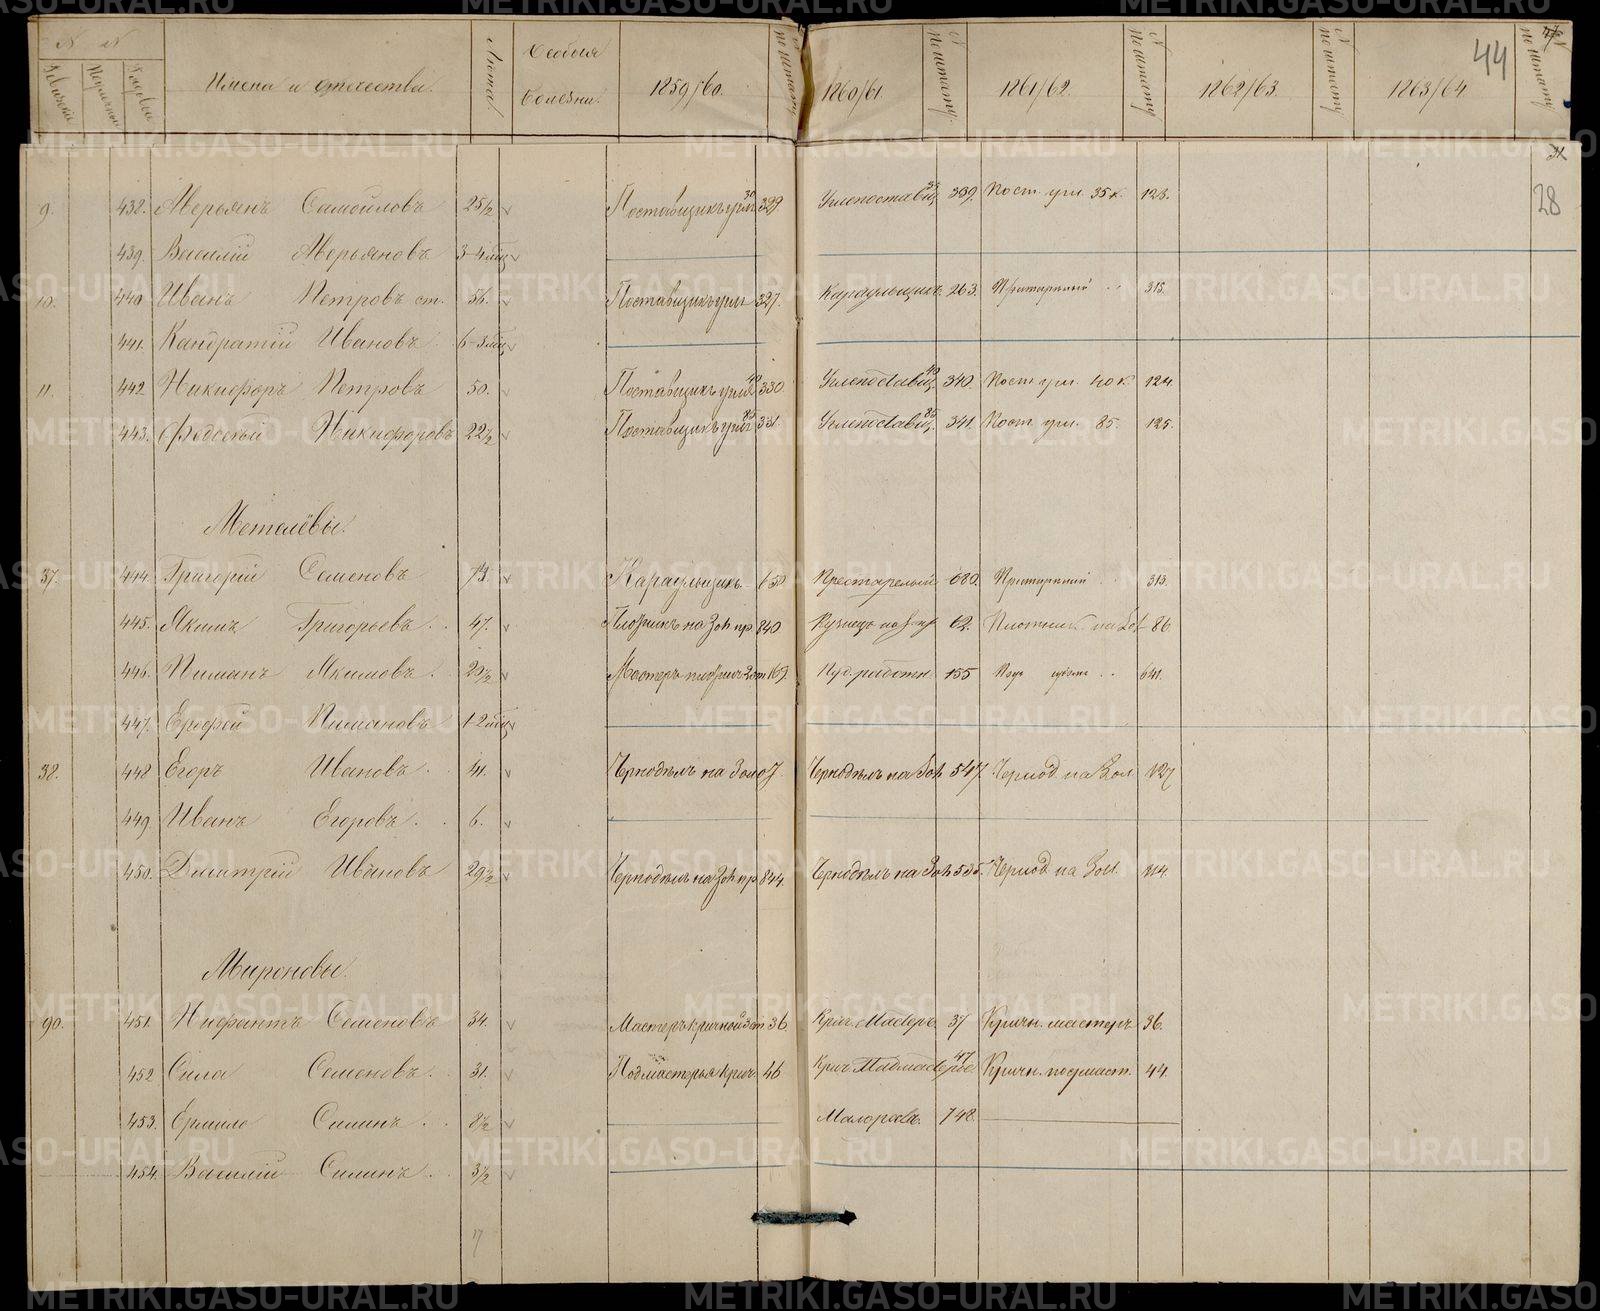 N N Имена и отчества. Лета Особыя болезни. 1859/60. по штату 1860/61. N по штату 1861/62. N по штату 1862/63. N по штату 1863/64 N по штату
Ревизский Подушный Рядовой
44
28
9. 438. Аверьянъ Самойловъ 25½ Поставщикъ угля 30 329 Углепоставщ. 339. Пост. угл. 35 к. 123.
439. Василий Аверьяновъ 3-4 мѣц
10. 440 Иванъ Петровъ ст. 56. Поставщикъ угля 327. Караульщикъ 263. Престарелый 315.
441. Кандратий Ивановъ 6-3 мѣц
11. 442 Никифоръ Петровъ 50. Поставщикъ угля 40 330 Углепоставщ. 40 340. Пост. угл. 40 к. 124.
443. Федосей Никифоровъ 22½ Поставщикъ угля 85 331. Углепоставщ. 85 341. Пост. угл. 85. 125.
Метелёвы.
37. 444. Григорий Семеновъ 73. Караульщикъ 650 Престарелый 680. Престарелый 313.
445. Якимъ Григорьевъ. 47. Плотникъ на Зол. пр. 840 Кузнецъ на З. пр. 62. Плотник. на Зол. 86
446. Пиманъ Якимовъ. 29½ Мастеръ 169. Куд. работн. 155 641.
447. Ерофей Пимановъ 1-2 мѣц
38. 448 Егоръ Ивановъ. 41. Чернодѣлъ на Золо 7. Чернодѣлъ на Зол. 547. Чернод. на Зол. 127
449. Иванъ Егоровъ. 6.
450. Дмитрий Ивановъ 29½ Чернодѣлъ на Зол. пр. 844. Чернодѣлъ на Зол. 535. Чернод. на Зол. 114.
Мироновы.
90. 451. Нифантъ Семеновъ 34. Мастеръ кричной 3 ст. 36. Крич. Мастеръ. 37 Кричн. мастеръ 36.
452 Сила Семеновъ. 31. Подмастерья крич. 46 Крич. Подмастерье 47 Кричн. подмаст. 44.
453. Ермило Силинъ. 8½ Малоросл. 748.
454. Василий Силинъ. 3½
METRIKI.GASO-URAL.RU